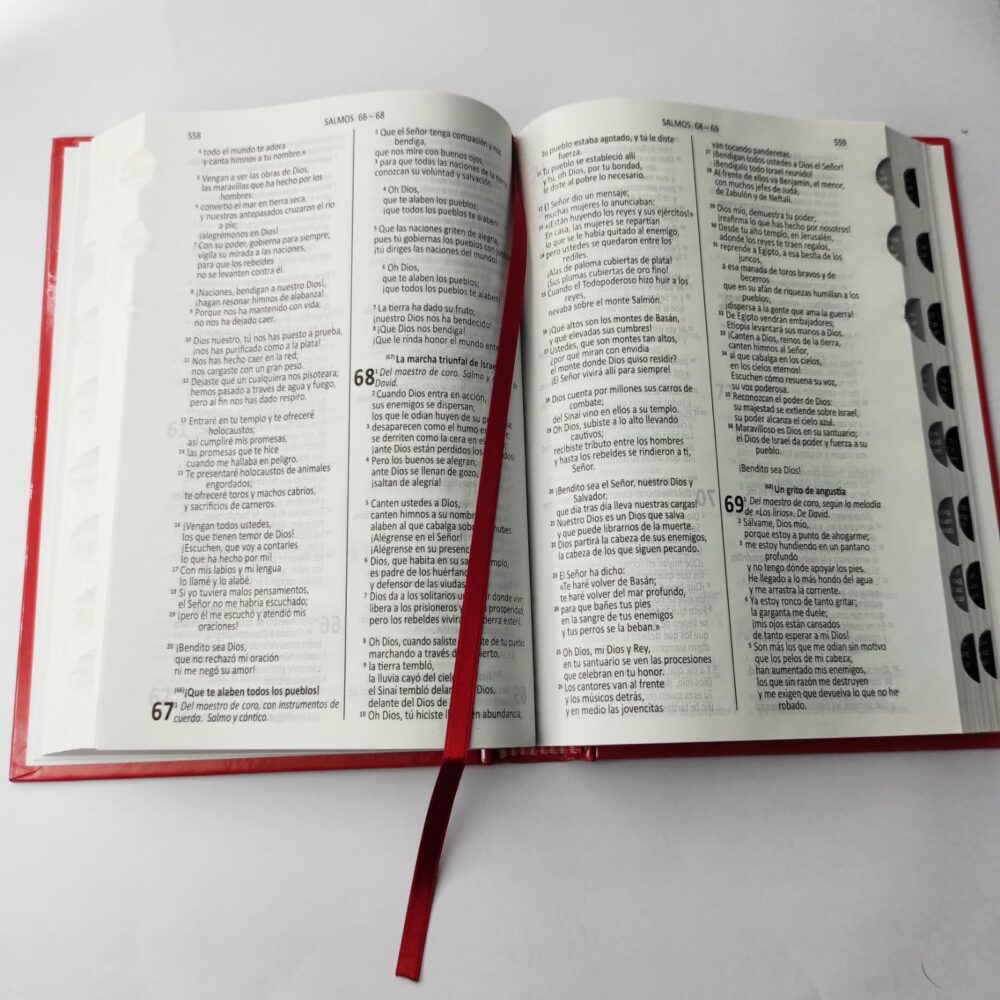 558
SALMOS 66–68
4 todo el mundo te adora
y canta himnos a tu nombre.»
5 Vengan a ver las obras de Dios,
las maravillas que ha hecho por los
hombres:
6 convirtió el mar en tierra seca,
y nuestros antepasados cruzaron el río
a pie;
¡alegrémonos en Dios!
7 Con su poder, gobierna para siempre;
vigila su mirada a las naciones,
para que los rebeldes
no se levanten contra él.
8 ¡Naciones, bendigan a nuestro Dios!,
¡hagan resonar himnos de alabanza!
9 Porque nos ha mantenido con vida;
no nos ha dejado caer.
10 Dios nuestro, tú nos has puesto a prueba,
¡nos has purificado como a la plata!
11 Nos has hecho caer en la red;
nos cargaste con un gran peso.
12 Dejaste que un cualquiera nos pisoteara;
hemos pasado a través de agua y fuego,
pero al fin nos has dado respiro.
13 Entraré en tu templo y te ofreceré
holocaustos;
así cumpliré mis promesas,
14 las promesas que te hice
cuando me hallaba en peligro.
15 Te presentaré holocaustos de animales
engordados;
te ofreceré toros y machos cabríos,
y sacrificios de carneros.
16 ¡Vengan todos ustedes,
los que tienen temor de Dios!
¡Escuchen, que voy a contarles
lo que ha hecho por mí!
17 Con mis labios y mi lengua
lo llamé y lo alabé.
18 Si yo tuviera malos pensamientos,
el Señor no me habría escuchado;
19 ¡pero él me escuchó y atendió mis
oraciones!
20 ¡Bendito sea Dios,
que no rechazó mi oración
ni me negó su amor!
(66) ¡Que te alaben todos los pueblos!
67 1 Del maestro de coro, con instrumentos de
cuerda. Salmo y cántico.
2 Que el Señor tenga compasión y nos
bendiga,
que nos mire con buenos ojos,
3 para que todas las naciones de la tierra
conozcan su voluntad y salvación.
4 Oh Dios,
que te alaben los pueblos;
¡que todos los pueblos te alaben!
5 Que las naciones griten de alegría,
pues tú gobiernas los pueblos con
¡tú diriges las naciones del mundo!
6 Oh Dios,
que te alaben los pueblos;
¡que todos los pueblos te alaben!
7 La tierra ha dado su fruto;
¡nuestro Dios nos ha bendecido!
8 ¡Que Dios nos bendiga!
¡Que le rinda honor el mundo
(67) La marcha triunfal de
68 1 Del maestro de coro. Salmo y
David.
2 Cuando Dios entra en acción,
sus enemigos se dispersan;
los que le odian huyen de su
3 desaparecen como el humo
se derriten como la cera en el
¡ante Dios están perdidos los
4 Pero los buenos se alegran;
ante Dios se llenan de gozo,
¡saltan de alegría!
5 Canten ustedes a Dios,
canten himnos a su
alaben al que cabalga
¡Alégrense en el Señor!
¡Alégrense en su
6 Dios, que habita en su
es padre de los
y defensor de las
7 Dios da a los solitarios donde vivir,
libera a los prisioneros y prosperidad;
pero los rebeldes tierra estéril.
8 Oh Dios, cuando saliste de tu pueblo
marchando a través
9 la tierra tembló,
la lluvia cayó del
el Sinaí tembló Dios,
delante del Dios de
10 Oh Dios, tú hiciste en abundancia;
SALMOS 68–69
559
Tu pueblo estaba agotado, y tú le diste
fuerza.
11 Tu pueblo se estableció allí
y tú, oh Dios, por tu bondad,
le diste al pobre lo necesario.
12 El Señor dio un mensaje;
muchas mujeres lo anunciaban:
13 «¡Están huyendo los reyes y sus ejércitos!»
En casa, las mujeres se repartían
lo que se le había quitado al enemigo,
14 pero ustedes se quedaron entre los
rediles.
¡Alas de paloma cubiertas de plata!
¡Sus plumas cubiertas de oro fino!
15 Cuando el Todopoderoso hizo huir a los
reyes,
nevaba sobre el monte Salmón.
16 ¡Qué altos son los montes de Basán,
y qué elevadas sus cumbres!
17 Ustedes, que son montes tan altos,
¿por qué miran con envidia
el monte donde Dios quiso residir?
¡El Señor vivirá allí para siempre!
18 Dios cuenta por millones sus carros de
combate;
del Sinaí vino en ellos a su templo.
19 Oh Dios, subiste a lo alto llevando
cautivos;
recibiste tributo entre los hombres
y hasta los rebeldes se rindieron a ti,
Señor.
20 ¡Bendito sea el Señor, nuestro Dios y
Salvador,
que día tras día lleva nuestras cargas!
21 Nuestro Dios es un Dios que salva
y que puede librarnos de la muerte.
22 Dios partirá la cabeza de sus enemigos,
la cabeza de los que siguen pecando.
23 El Señor ha dicho:
«Te haré volver de Basán;
te haré volver del mar profundo,
24 para que bañes tus pies
en la sangre de tus enemigos
y tus perros se la beban.»
25 Oh Dios, mi Dios y Rey,
en tu santuario se ven las procesiones
que celebran en tu honor.
26 Los cantores van al frente
y los músicos detrás,
y en medio las jovencitas
van tocando panderetas.
27 ¡Bendigan todos ustedes a Dios el Señor!
¡Bendígalo todo Israel reunido!
28 Al frente de ellos va Benjamín, el menor,
con muchos jefes de Judá,
de Zabulón y de Neftalí.
29 Dios mío, demuestra tu poder,
¡reafirma lo que has hecho por nosotros!
30 Desde tu alto templo, en Jerusalén,
adonde los reyes te traen regalos,
31 reprende a Egipto, a esa bestia de los
juncos,
a esa manada de toros bravos y de
becerros
que en su afán de riquezas humillan a los
pueblos;
¡dispersa a la gente que ama la guerra!
32 De Egipto vendrán embajadores;
Etiopía levantará sus manos a Dios.
33 ¡Canten a Dios, reinos de la tierra,
canten himnos al Señor,
34 al que cabalga en los cielos,
en los cielos eternos!
Escuchen cómo resuena su voz,
su voz poderosa.
35 Reconozcan el poder de Dios:
su majestad se extiende sobre Israel,
su poder alcanza el cielo azul.
36 Maravilloso es Dios en su santuario;
el Dios de Israel da poder y fuerza a su
pueblo.
¡Bendito sea Dios!
(68) Un grito de angustia
69 1 Del maestro de coro, según la melodía
de «Los lirios». De David.
2 Sálvame, Dios mío,
porque estoy a punto de ahogarme;
3 me estoy hundiendo en un pantano
profundo
y no tengo dónde apoyar los pies.
He llegado a lo más hondo del agua
y me arrastra la corriente.
4 Ya estoy ronco de tanto gritar;
la garganta me duele;
¡mis ojos están cansados
de tanto esperar a mi Dios!
5 Son más los que me odian sin motivo
que los pelos de mi cabeza;
han aumentado mis enemigos,
los que sin razón me destruyen
y me exigen que devuelva lo que no he
robado.